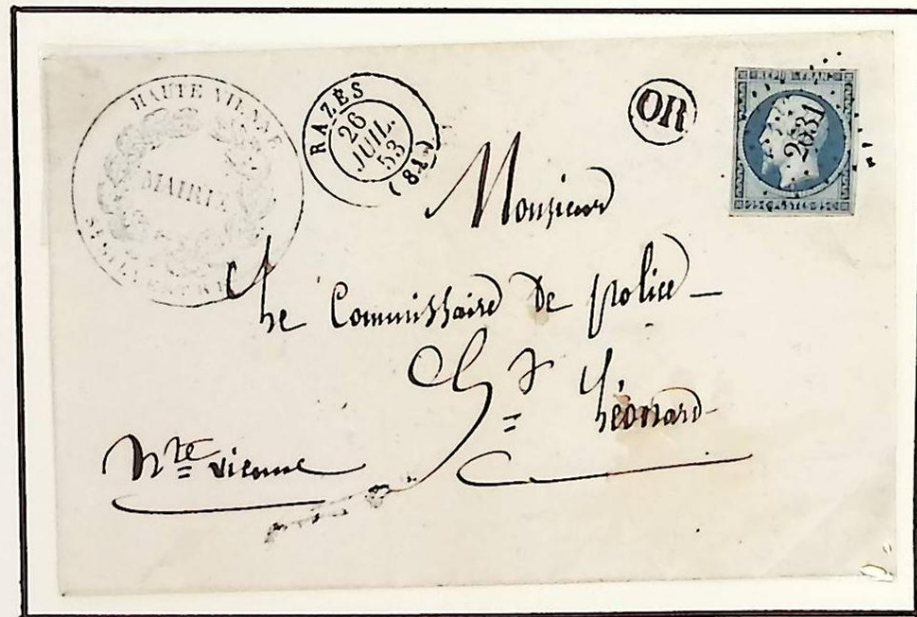 HAUTE VIENNE
MAIRIE
RAZÈS
26
JUIL.
53
(81)
OR
REPUB FRANC
2631
Monsieur
Le Commissaire de police
St Léonard
Hte vienne